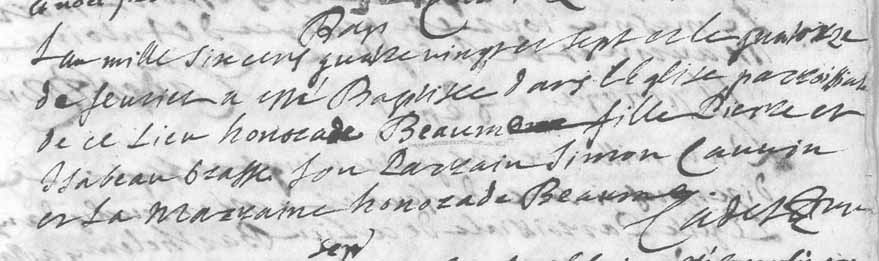 Lan mille sixcens quatre vingt et sept et le quatorze
de feurier a esté Baptisée dans l'Eglise parroissialle
de ce Lieu honorade Beaume fille Pierre et
Isabeau brasse son Parrain Simon Cauuin
et La Marraine honorade Beaume
Cadet